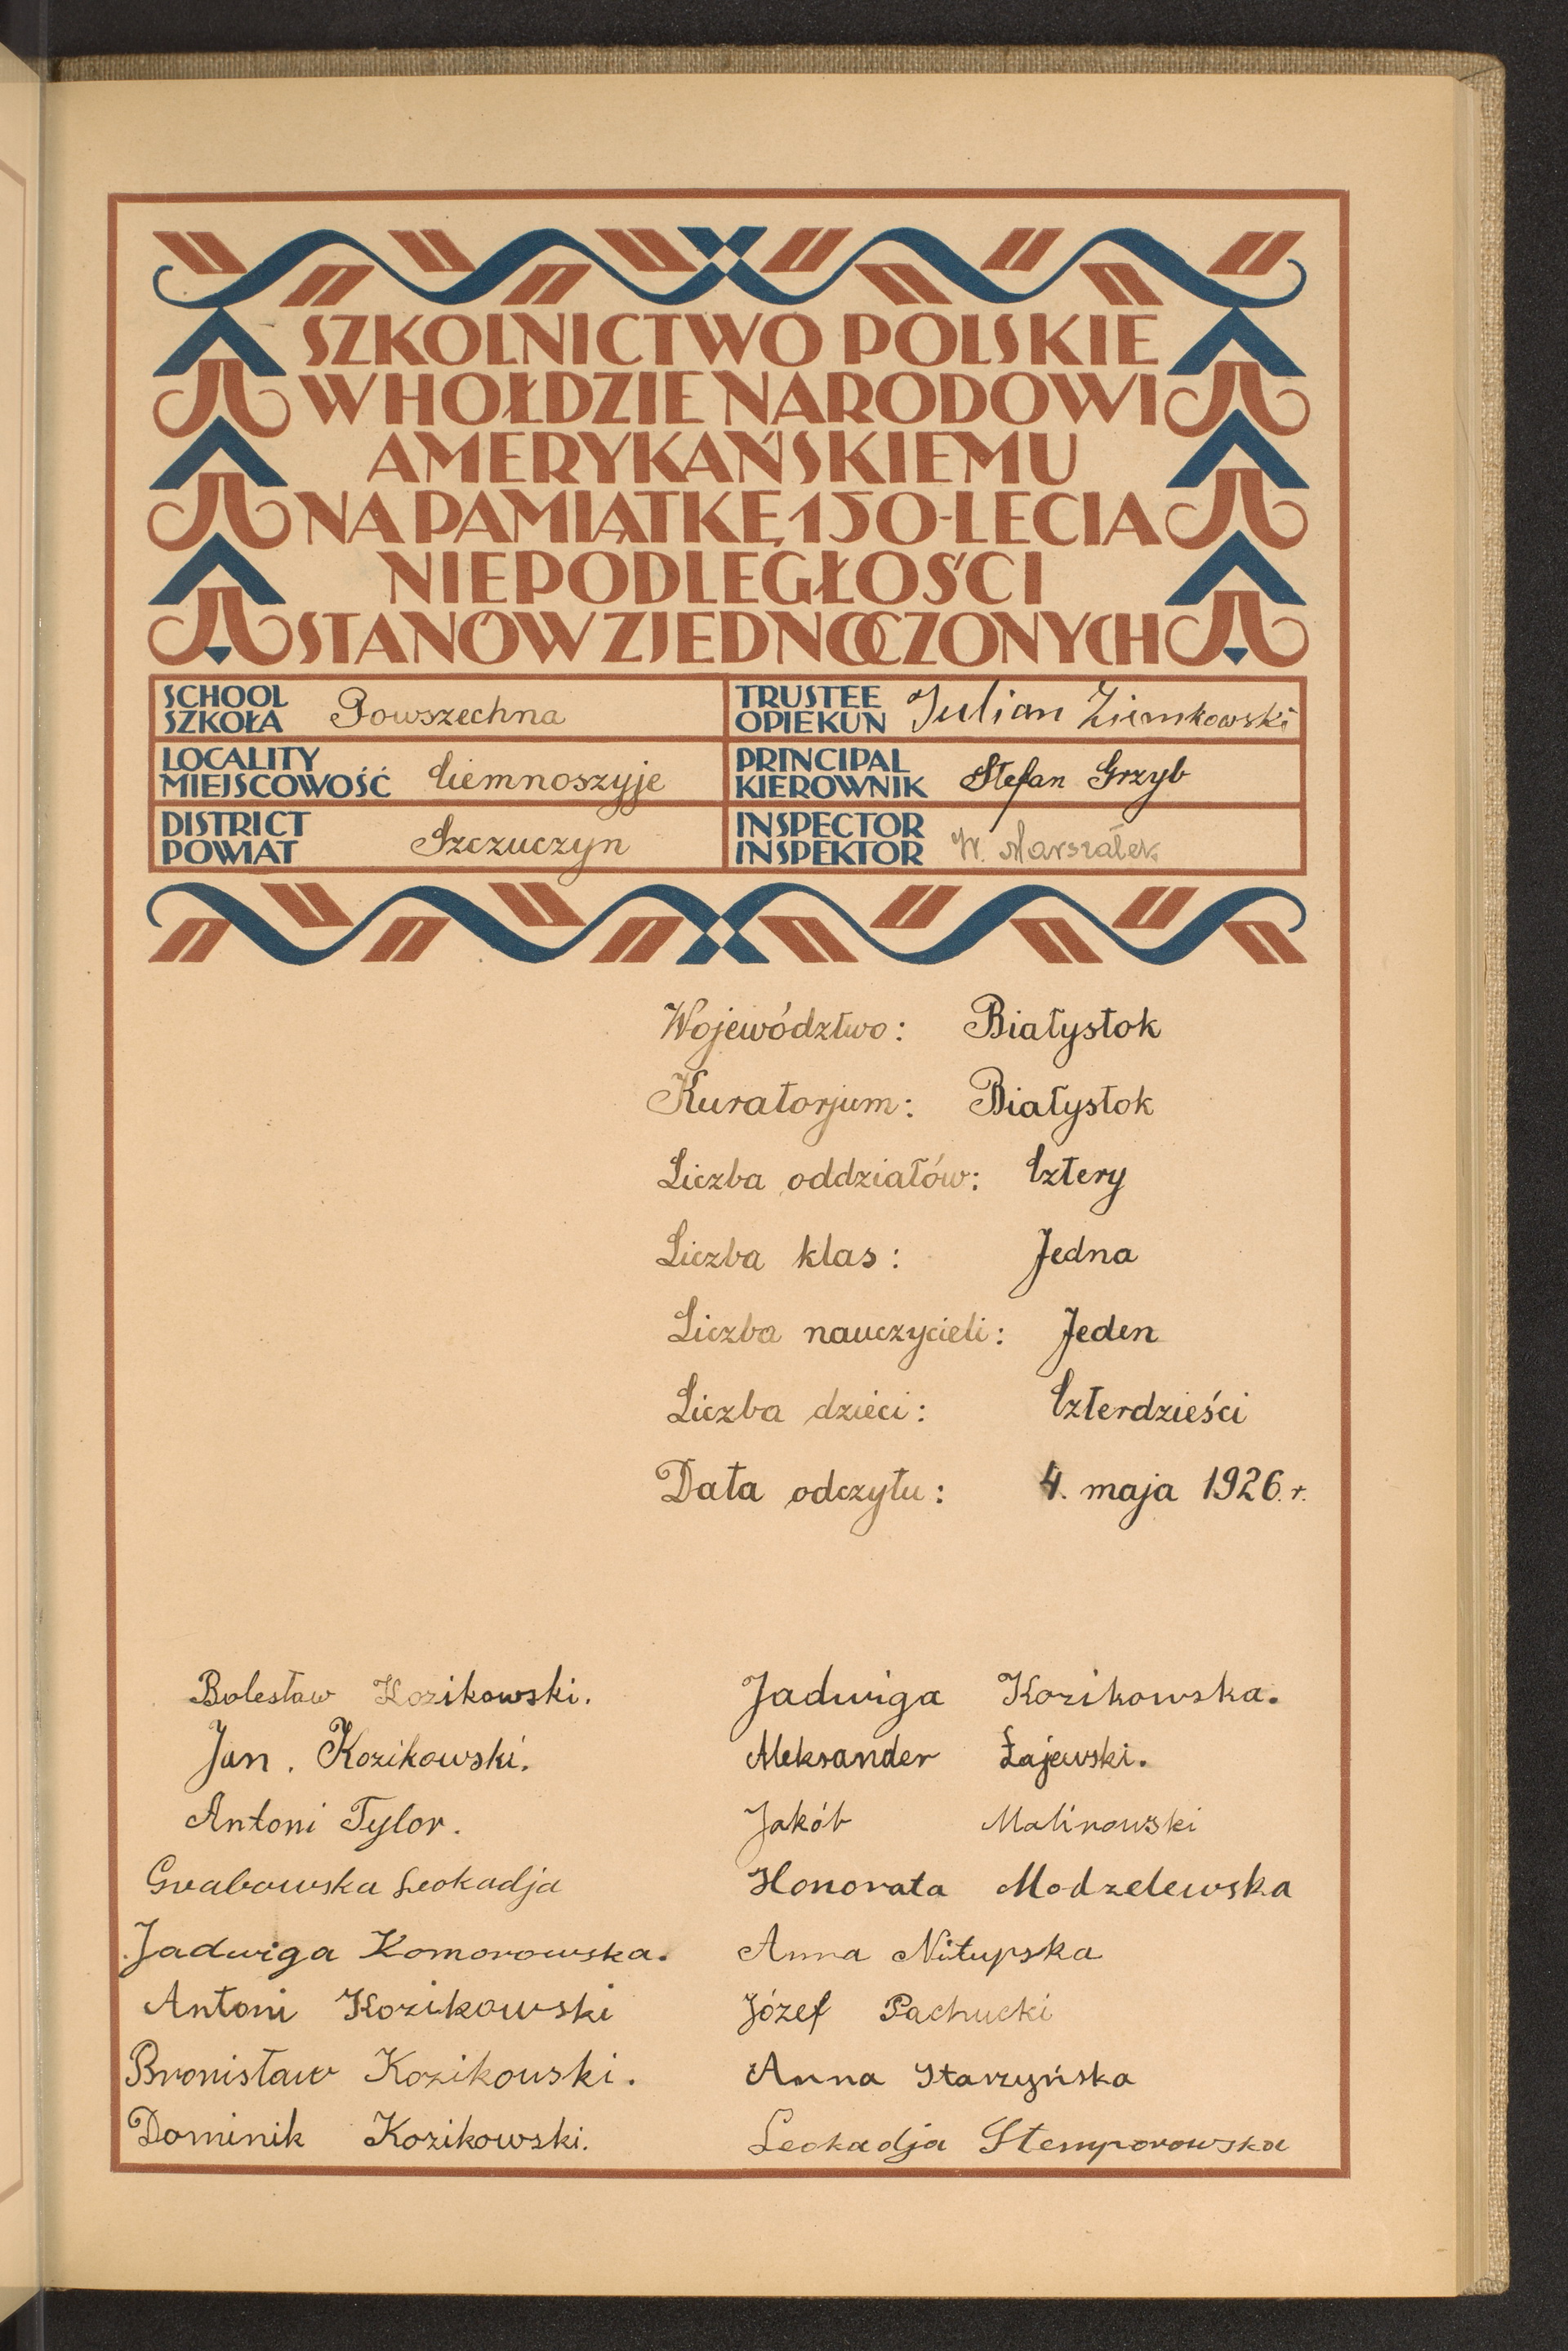 SZKOLNICTWO POLSKIE
W HOŁDZIE NARODOWI
AMERYKAŃSKIEMU
NA PAMIĄTKĘ 150-LECIA
NIEPODLEGŁOŚCI
STANÓW ZJEDNOCZONYCH
SCHOOL
SZKOŁA Powszechna
TRUSTEE
OPIEKUN Julian Ziemkowski
LOCALITY
MIEJSCOWOŚĆ Ciemnoszyje
PRINCIPAL
KIEROWNIK Stefan Grzyb
DISTRICT
POWIAT Szczuczyn
INSPECTOR
INSPEKTOR W. Marszałek
Województwo: Białystok
Kuratorjum: Białystok
Liczba oddziałów: Cztery
Liczba klas: Jedna
Liczba nauczycieli: Jeden
Liczba dzieci: Czterdzieści
Data odczytu: 4. maja 1926. r.
Bolesław Kozikowski.
Jan. Kozikowski.
Antoni Tylor.
Grabowska Leokadja
Jadwiga Komorowska.
Antoni Kozikowski
Bronisław Kozikowski.
Dominik Kozikowski.
Jadwiga Kozikowska.
Aleksander Łajewski.
Jakób Malinowski
Honorata Modzelewska
Anna Nitupska
Józef Pachucki
Anna Starzyńska
Leokadja Stemporowska